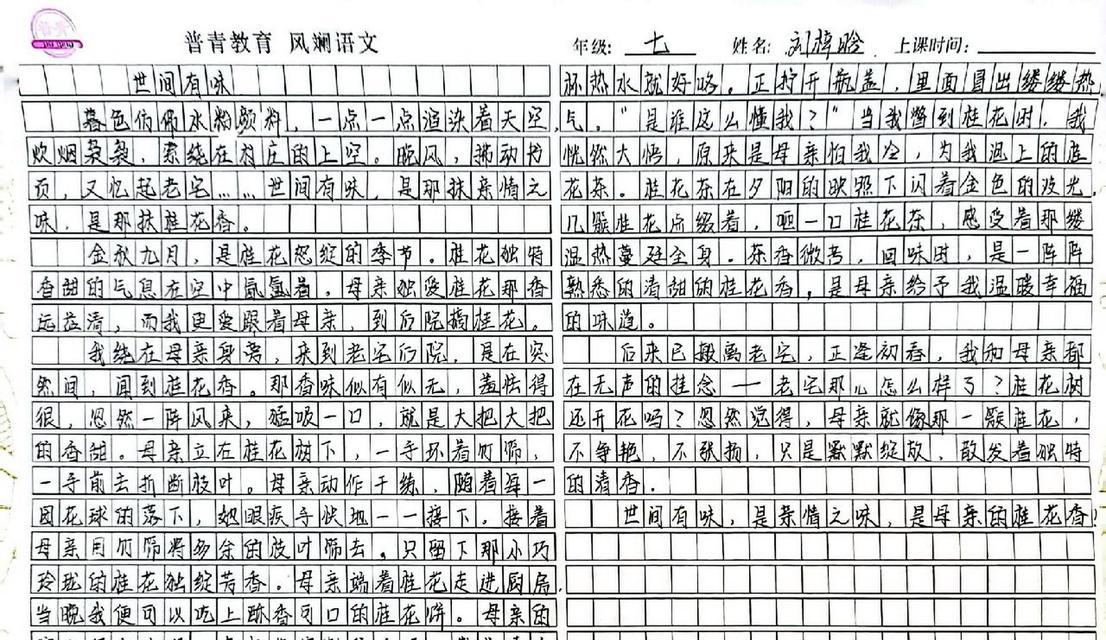 普青教育 风斓语文
年级: 七 姓名: 刘梓晗 上课时间:
世间有味
暮色仿佛水粉颜料，一点一点渲染着天空，
炊烟袅袅，萦绕在村庄的上空。晚风，拂动书
页，又忆起老宅……世间有味，是那抹亲情之
味，是那抹桂花香。
金秋九月，是桂花怒绽的季节。桂花独特
香甜的气息在空中氤氲着，母亲独爱桂花那香
远益清，而我更爱跟着母亲，到后院摘桂花。
我绕在母亲身旁，来到老宅后院，是在突
然间，闻到桂花香。那香味似有似无，羞怯得
很，忽然一阵风来，猛吸一口，就是大把大把
的香甜。母亲立在桂花树下，一手环着竹筛，
一手前去折断枝叶。母亲动作干练，随着每一
团花球的落下，她眼疾手快地一一接下。接着
母亲用竹筛将多余的枝叶筛去。只留下那小巧
玲珑的桂花独绽芳香。母亲端着桂花走进厨房，
当晚我便可以吃上酥香可口的桂花饼。母亲的
杯热水就好咯。正拧开瓶盖，里面冒出缕缕热
气。"是谁这么懂我？"当我瞥到桂花时，我
恍然大悟，原来是母亲怕我冷，为我温上的桂
花茶。桂花茶在夕阳的映照下闪着金色的波光，
几簇桂花点缀着，咂一口桂花茶，感受着那缕
温热蔓延全身。茶香微苦，回味时，是一阵阵
熟悉的清甜的桂花香，是母亲给予我温暖幸福
的味道。
后来已搬离老宅，正逢初春，我和母亲都
在无声的挂念——老宅那儿怎么样了？桂花树
还开花吗？忽然觉得，母亲就像那一簇桂花，
不争艳，不张扬，只是默默绽放，散发着独特
的清香.
世间有味，是亲情之味，是母亲的桂花香！